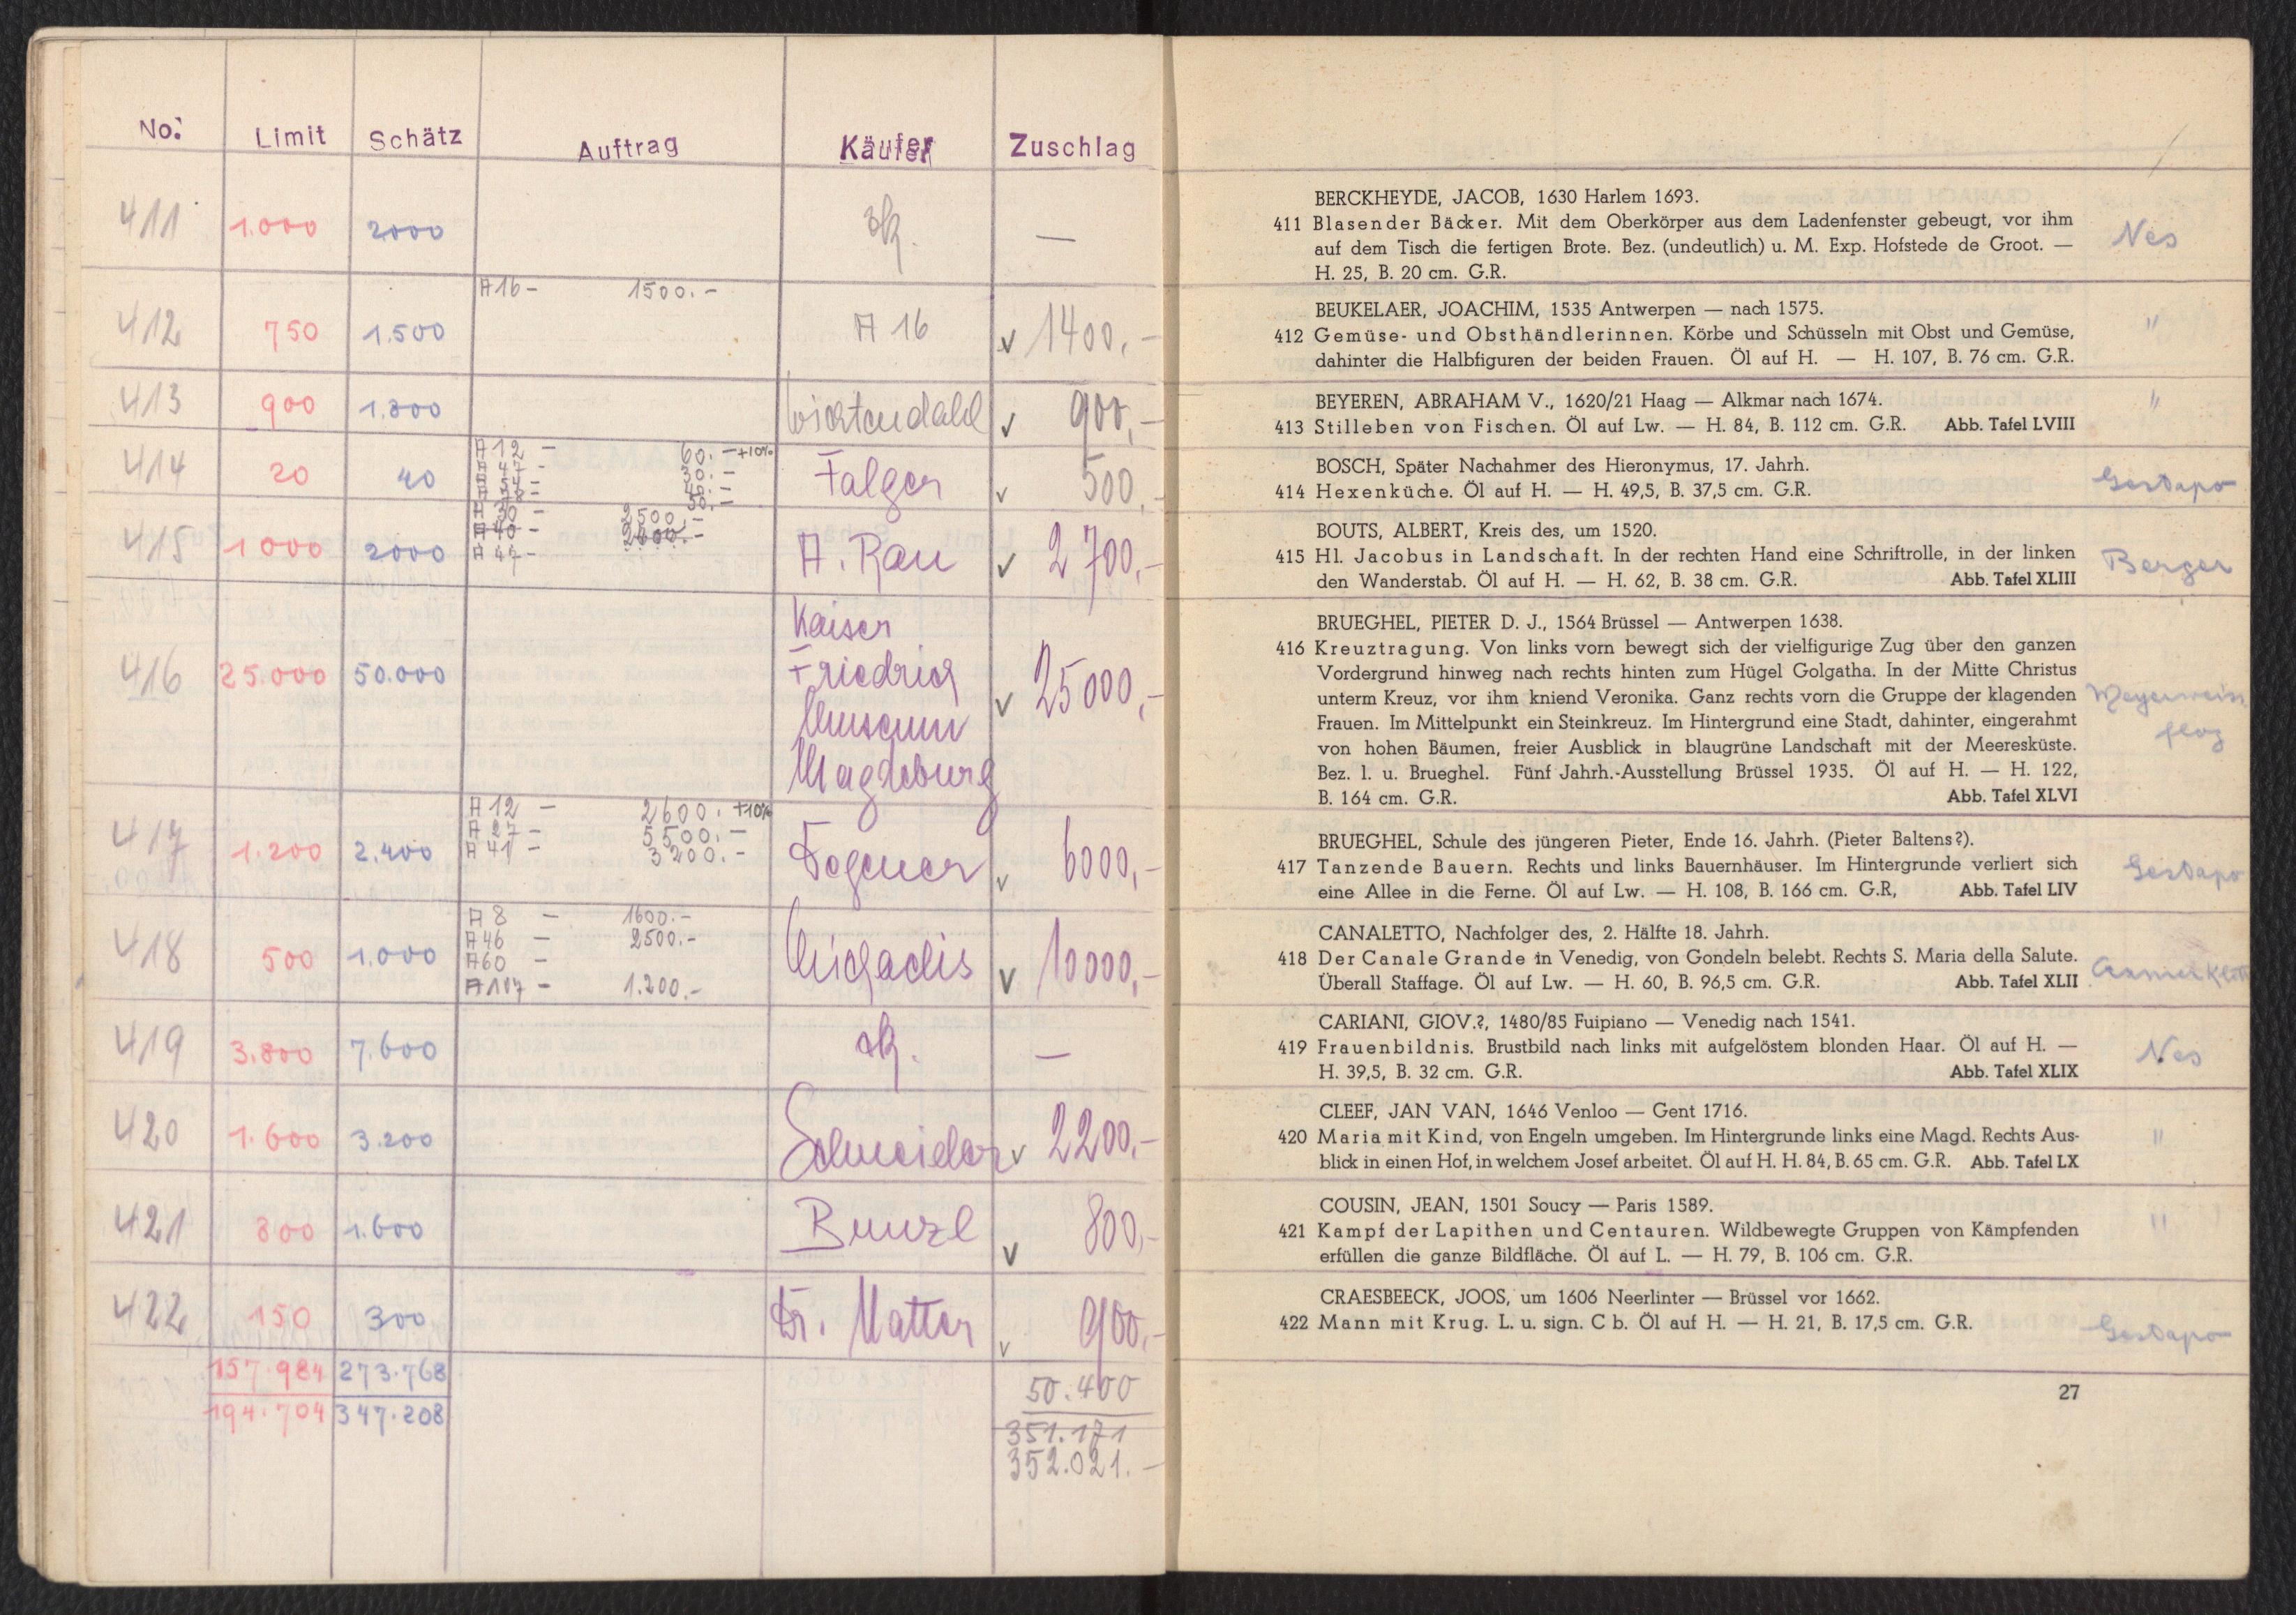 No: Limit Schätz Auftrag Käufer Zuschlag
411 1.000 2000 —
A16 - 1500.-
412 750 1.500 A 16 v 1400,-
413 900 1.800 v 900,-
A12 - 60.- +10%
A 47 - 30.-
414 20 40 Falger v 500,-
50.-
A 30 - 2500.-
A40 - 2600.-
A 47 -
415 1000 2000 A. Rau v 2700,-
416 25.000 50.000 Kaiser
Friedrich
Museum
Magdeburg v 25000,-
A12 - 2600.- +10%
A 27 - 5500.-
A 41 - 3200.-
417 1.200 2.400 Degener v 6000,-
A 8 - 1600.-
A46 - 2500.-
A60 -
A117 - 1.200.-
418 500 1.000 v 10000,-
419 3.800 7.600 —
420 1.600 3.200 Schneider v 2200,-
421 800 1.600 Bunzl v 800,-
422 150 300 Dr. v 900,-
157.984 273.768 50.400
194.704 347.208 351.171
352.021.-
BERCKHEYDE, JACOB, 1630 Harlem 1693.
411 Blasender Bäcker. Mit dem Oberkörper aus dem Ladenfenster gebeugt, vor ihm
auf dem Tisch die fertigen Brote. Bez. (undeutlich) u. M. Exp. Hofstede de Groot. —
H. 25, B. 20 cm. G.R.
Nes
BEUKELAER, JOACHIM, 1535 Antwerpen — nach 1575.
412 Gemüse- und Obsthändlerinnen. Körbe und Schüsseln mit Obst und Gemüse,
dahinter die Halbfiguren der beiden Frauen. Öl auf H. — H. 107, B. 76 cm. G.R.
"
BEYEREN, ABRAHAM V., 1620/21 Haag — Alkmar nach 1674.
413 Stilleben von Fischen. Öl auf Lw. — H. 84, B. 112 cm. G.R. Abb. Tafel LVIII
"
BOSCH, Später Nachahmer des Hieronymus, 17. Jahrh.
414 Hexenküche. Öl auf H. — H. 49,5, B. 37,5 cm. G.R.
Gestapo
BOUTS, ALBERT, Kreis des, um 1520.
415 Hl. Jacobus in Landschaft. In der rechten Hand eine Schriftrolle, in der linken
den Wanderstab. Öl auf H. — H. 62, B. 38 cm. G.R. Abb. Tafel XLIII
Berger
BRUEGHEL, PIETER D. J., 1564 Brüssel — Antwerpen 1638.
416 Kreuztragung. Von links vorn bewegt sich der vielfigurige Zug über den ganzen
Vordergrund hinweg nach rechts hinten zum Hügel Golgatha. In der Mitte Christus
unterm Kreuz, vor ihm kniend Veronika. Ganz rechts vorn die Gruppe der klagenden
Frauen. Im Mittelpunkt ein Steinkreuz. Im Hintergrund eine Stadt, dahinter, eingerahmt
von hohen Bäumen, freier Ausblick in blaugrüne Landschaft mit der Meeresküste.
Bez. l. u. Brueghel. Fünf Jahrh.-Ausstellung Brüssel 1935. Öl auf H. — H. 122,
B. 164 cm. G.R. Abb. Tafel XLVI
BRUEGHEL, Schule des jüngeren Pieter, Ende 16. Jahrh. (Pieter Baltens?).
417 Tanzende Bauern. Rechts und links Bauernhäuser. Im Hintergrunde verliert sich
eine Allee in die Ferne. Öl auf Lw. — H. 108, B. 166 cm. G.R, Abb. Tafel LIV
Gestapo
CANALETTO, Nachfolger des, 2. Hälfte 18. Jahrh.
418 Der Canale Grande in Venedig, von Gondeln belebt. Rechts S. Maria della Salute.
Überall Staffage. Öl auf Lw. — H. 60, B. 96,5 cm. G.R. Abb. Tafel XLII
CARIANI, GIOV.?, 1480/85 Fuipiano — Venedig nach 1541.
419 Frauenbildnis. Brustbild nach links mit aufgelöstem blonden Haar. Öl auf H. —
H. 39,5, B. 32 cm. G.R. Abb. Tafel XLIX
Nes
CLEEF, JAN VAN, 1646 Venloo — Gent 1716.
420 Maria mit Kind, von Engeln umgeben. Im Hintergrunde links eine Magd. Rechts Aus-
blick in einen Hof, in welchem Josef arbeitet. Öl auf H. H. 84, B. 65 cm. G.R. Abb. Tafel LX
"
COUSIN, JEAN, 1501 Soucy — Paris 1589.
421 Kampf der Lapithen und Centauren. Wildbewegte Gruppen von Kämpfenden
erfüllen die ganze Bildfläche. Öl auf L. — H. 79, B. 106 cm. G.R.
"
CRAESBEECK, JOOS, um 1606 Neerlinter — Brüssel vor 1662.
422 Mann mit Krug. L. u. sign. C b. Öl auf H. — H. 21, B. 17,5 cm. G.R.
Gestapo
27